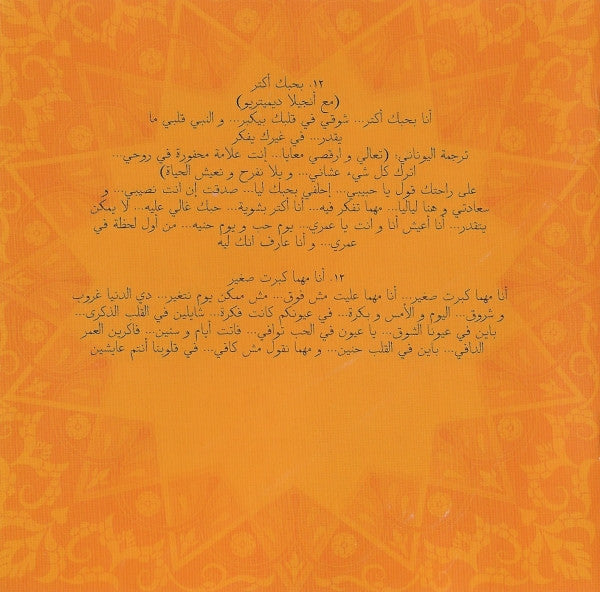 ١٢. بحبك أكتر
(مع أنجيلا ديميتريو)
أنا بحبك أكتر... شوقي في قلبك بيكبر... و النبي قلبي ما
يقدر... في غيرك يفكر
ترجمة اليوناني: (تعالي و ارقصي معايا.. إنت علامة محفورة في روحي...
اترك كل شيء عشاني... و يلا نفرح و نعيش الحياة)
على راحتك قول يا حبيبي... إحلفي بحبك ليا... صدقت إن انت نصيبي... و
سعادتي و هنا لياليا... مهما تفكر فيه... أنا أكتر بشوية... حبك غالي عليه... لا يمكن
يتقدر... أنا أعيش أنا و انت يا عمري... يوم حب و يوم حنيه... من أول لحظة في
عمري... و أنا عارف انك ليه
١٣. أنا مهما كبرت صغير
أنا مهما كبرت صغير... أنا مهما عليت مش فوق... مش ممكن يوم نتغير... دي الدنيا غروب
و شروق... اليوم و الأمس و بكرة... في عيونكم كانت فكرة... شايلين في القلب الذكرى...
باين في عيونا الشوق... يا عيون في الحب توافي... فاتت أيام و سنين... فاكرين العمر
الدافي... باين في القلب حنين... و مهما نقول مش كافي... في قلوبنا أنتم عايشين